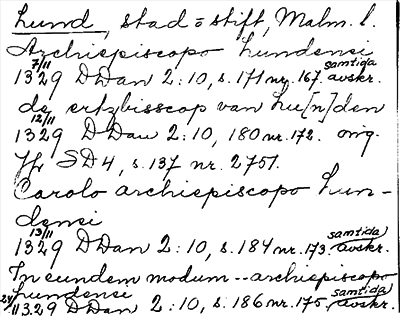 Lund, stad o stift, Malm. l.
Archiepiscopo Lundensi
7/11 1329 DDan 2:10, s. 171 nr. 167. samtida avskr.
de ertzbisscop van Lu[n]den
12/11 1329 DDan 2:10, 180 nr. 172. orig.
Jfr SD 4, s. 137 nr. 2751.
Carolo archiepiscopo Lun-
densi
13/11 1329 DDan 2:10, s. 184 nr. 173. samtida avskr.
In eundem modum -- archiepiscopo
Lundensi
24/11 1329 DDan 2:10, s. 186 nr. 175. samtida avskr.